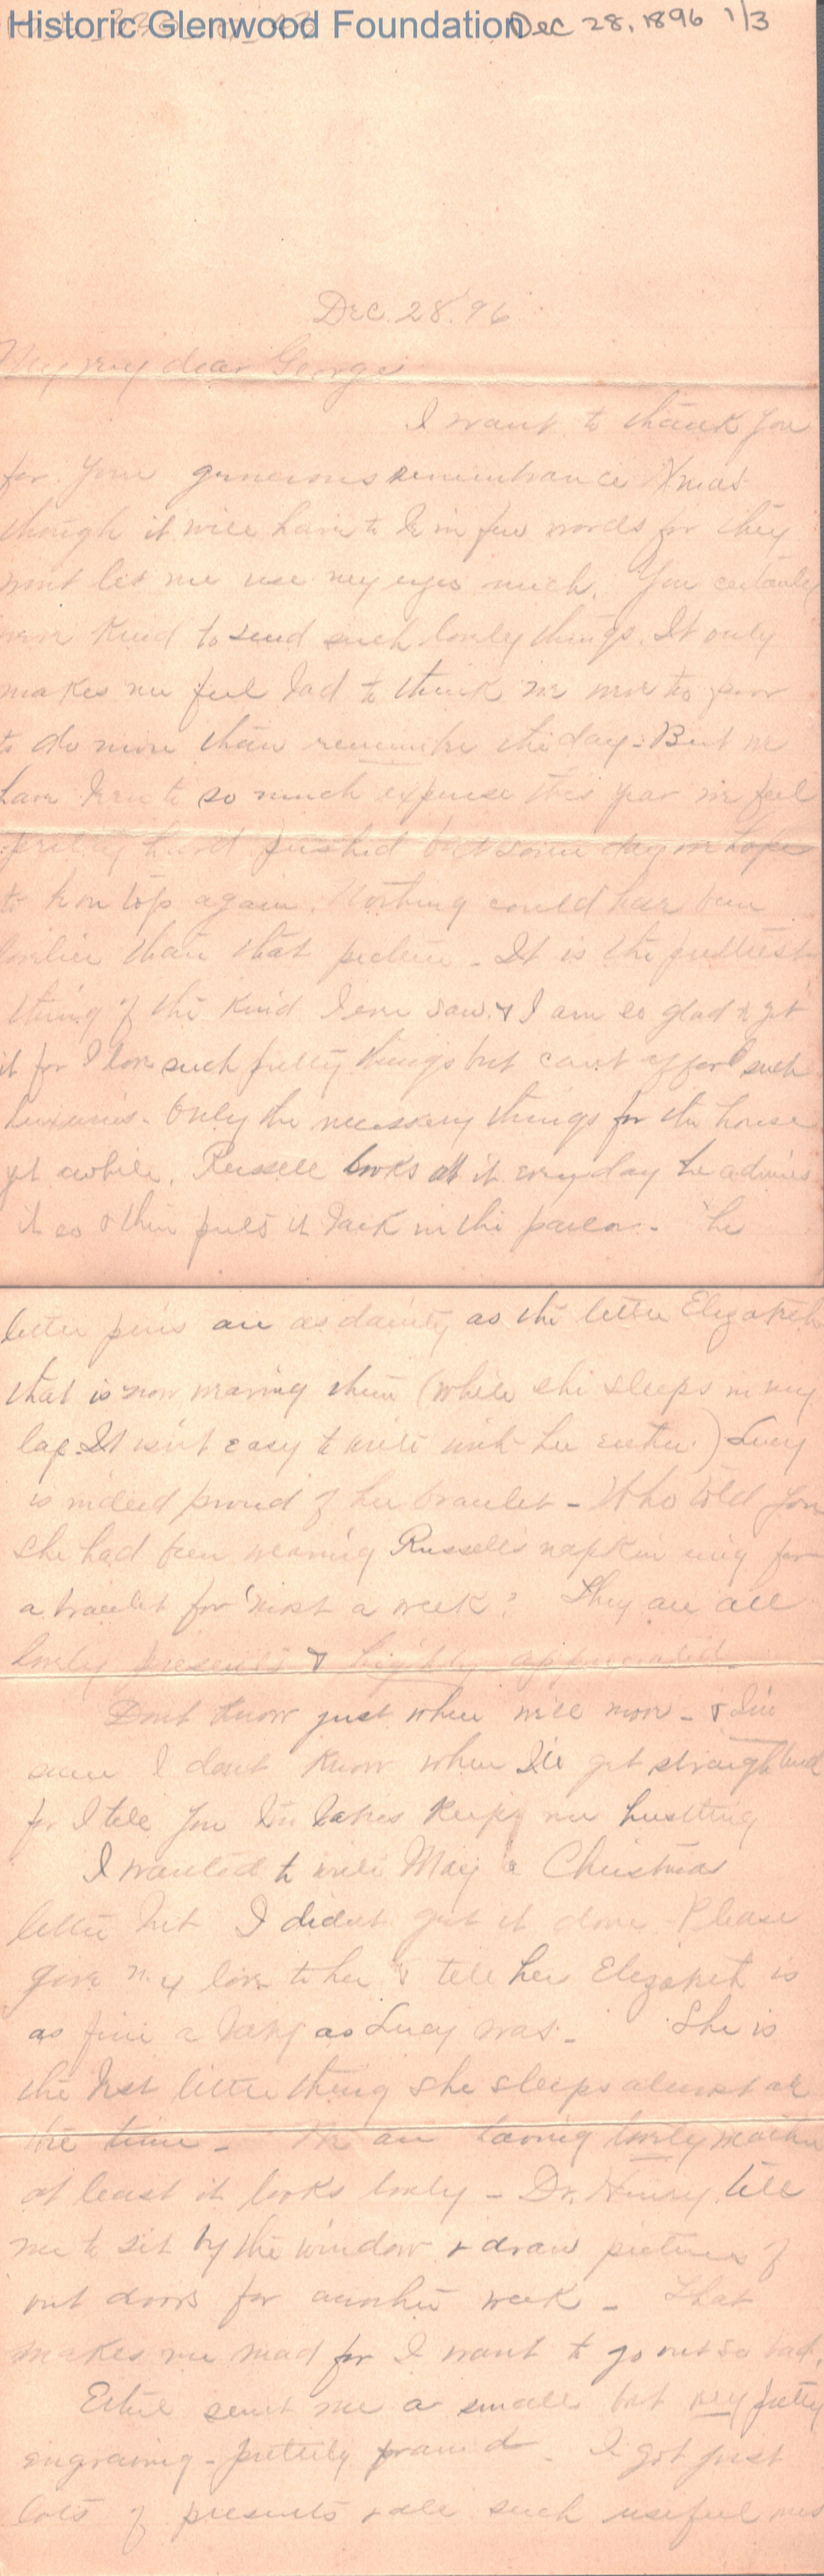 Historic Glenwood Foundation
Dec 28, 1896 1/3
Dec. 28. 96
My very dear George
I want to thank you
for your generous remembrance Xmas
though it will have to be in few words for they
wont let me use my eyes much. You certainly
were kind to send such lovely things. It only
makes me feel bad to think we were too poor
to do more than remember the day. But we
have been to so much expense this year we feel
pretty hard pushed but some day we hope
to be on top again. Nothing could have been
lovelier than that picture - It is the prettiest
thing of the kind I ever saw & I am so glad to get
it for I love such pretty things but can't afford such
luxuries. Only the necessary things for the house
yet awhile. Russell looks at it every day he admires
it so & then puts it back in the parlor. The
little pins are as dainty as the little Elizabeth
that is now wearing them (while she sleeps in my
lap. It isn't easy to write with her either.) Lucy
is indeed proud of her bracelet - Who told you
she had been wearing Russell's napkin ring for
a bracelet for 'most a week? They are all
lovely presents & highly appreciated.
Dont know just when we'll move - & I'm
sure I dont know when I'll get straightened
for I tell you two babes keeps me hustling
I wanted to write May a Christmas
letter but I didnt get it done Please
give my love to her & tell her Elizabeth is
as fine a baby as Lucy was. She is
the best little thing she sleeps almost all
the time - We are having lovely weather
at least it looks lovely - Dr. Henry tells
me to sit by the window & draw pictures of
out doors for another week - That
makes me mad for I want to go out so bad.
Ethel sent me a small but very pretty
engraving - prettily framed. I got just
lots of presents & all such useful ones